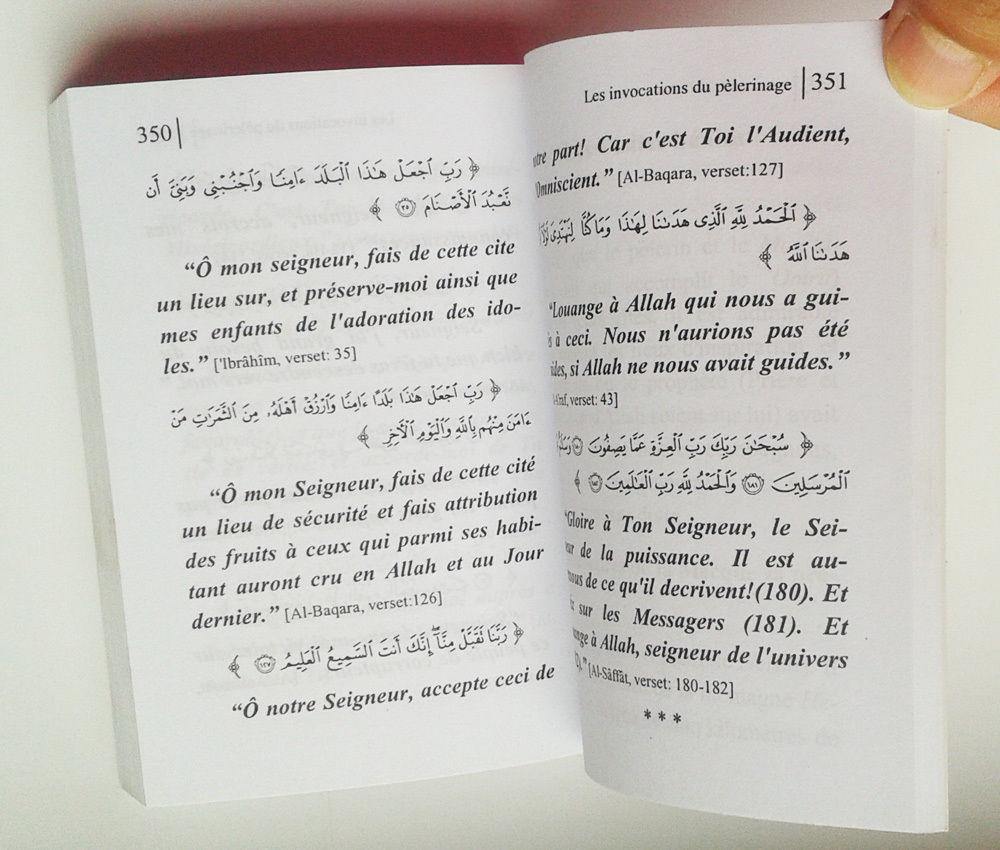 350
﴿ رَبِّ ٱجْعَلْ هَـٰذَا ٱلْبَلَدَ ءَامِنًا وَٱجْنُبْنِى وَبَنِىَّ أَن
نَّعْبُدَ ٱلْأَصْنَامَ ٣٥ ﴾
“Ô mon seigneur, fais de cette cite
un lieu sur, et préserve-moi ainsi que
mes enfants de l'adoration des ido-
les.” ['Ibrâhîm, verset: 35]
﴿ رَبِّ ٱجْعَلْ هَـٰذَا بَلَدًا ءَامِنًا وَٱرْزُقْ أَهْلَهُۥ مِنَ ٱلثَّمَرَٰتِ مَنْ
ءَامَنَ مِنْهُم بِٱللَّهِ وَٱلْيَوْمِ ٱلْأَخِرِ ﴾
“Ô mon Seigneur, fais de cette cité
un lieu de sécurité et fais attribution
des fruits à ceux qui parmi ses habi-
tant auront cru en Allah et au Jour
dernier.” [Al-Baqara, verset:126]
﴿ رَبَّنَا تَقَبَّلْ مِنَّآ إِنَّكَ أَنتَ ٱلسَّمِيعُ ٱلْعَلِيمُ ١٢٧ ﴾
“Ô notre Seigneur, accepte ceci de
Les invocations du pèlerinage 351
part! Car c'est Toi l'Audient,
Omniscient.” [Al-Baqara, verset:127]
﴿ ٱلْحَمْدُ لِلَّهِ ٱلَّذِى هَدَىٰنَا لِهَـٰذَا وَمَا كُنَّا لِنَهْتَدِىَ
هَدَىٰنَا ٱللَّهُ ﴾
“Louange à Allah qui nous a gui-
à ceci. Nous n'aurions pas été
si Allah ne nous avait guides.”
verset: 43]
﴿ سُبْحَـٰنَ رَبِّكَ رَبِّ ٱلْعِزَّةِ عَمَّا يَصِفُونَ ١٨٠
ٱلْمُرْسَلِينَ ١٨١ وَٱلْحَمْدُ لِلَّهِ رَبِّ ٱلْعَـٰلَمِينَ ١٨٢ ﴾
“Gloire à Ton Seigneur, le Sei-
de la puissance. Il est au-
de ce qu'il decrivent!(180). Et
sur les Messagers (181). Et
à Allah, seigneur de l'univers
[Al-Sâffât, verset: 180-182]
***